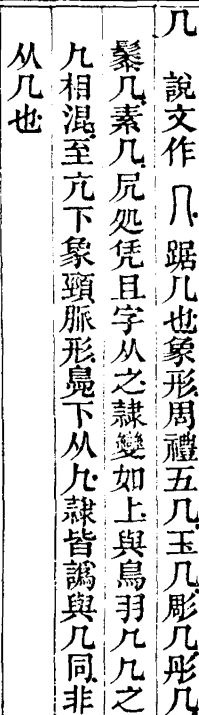 几　說文作𠘨踞几也象形周禮五几玉几彫几彤几
髹几素几凥処凭且字从之隸變如上與鳥羽𠘧𠘧之
𠘧相混至亢下象頸脈形鳧下从𠘧隸皆譌與几同非
从几也